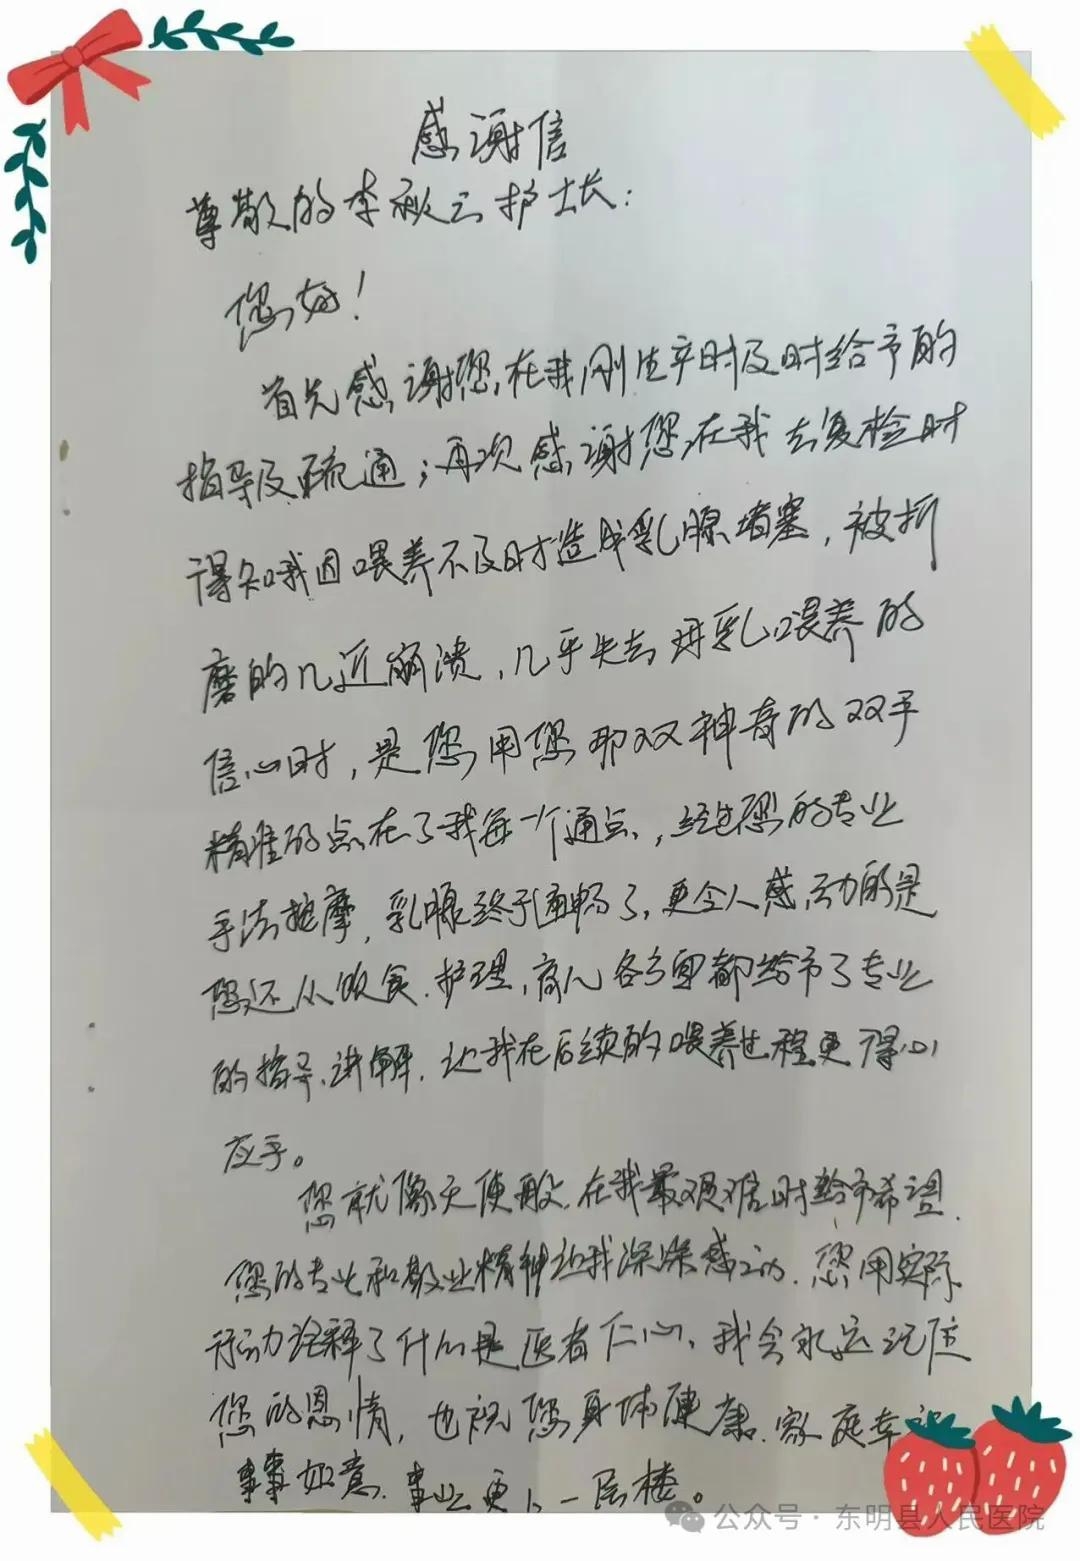 感谢信
尊敬的李秋云护士长：
您好！
首先感谢您，在我刚生产时及时给予的
指导及疏通；再次感谢您在我去复检时
得知我因喂养不及时造成乳腺堵塞，被折
磨的几近崩溃，几乎失去母乳喂养的
信心时，是您用您那双神奇的双手
精准的点在了我每一个通点，经过您的专业
手法按摩，乳腺终于通畅了，更令人感动的是
您还从饮食、护理，育儿各方面都给予了专业
的指导、讲解，让我在后续的喂养过程更得心
应手。
您就像天使般，在我最艰难时给予希望，
您的专业和敬业精神让我深深感动，您用实际
行动诠释了什么是医者仁心，我会永远记住
您的恩情，也祝您身体健康、家庭幸
事事如意、事业更上一层楼。
公众号·东明县人民医院